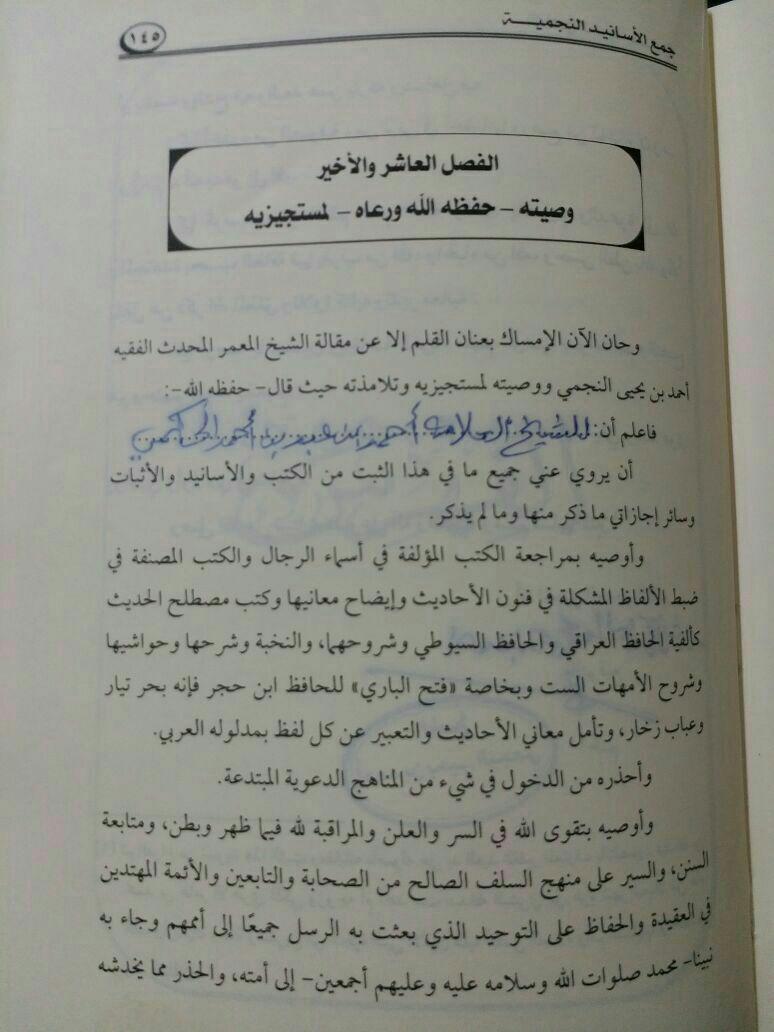 جمع الأسانيد النجمية
١٤٥
الفصل العاشر والأخير
وصيته - حفظه الله ورعاه - لمستجيزيه
وحان الآن الإمساك بعنان القلم إلا عن مقالة الشيخ المعمر المحدث الفقيه
أحمد بن يحيى النجمي ووصيته لمستجيزيه وتلامذته حيث قال- حفظه الله-:
فاعلم أن: الشيخ العلامة أحمد بن محمد
أن يروي عني جميع ما في هذا الثبت من الكتب والأسانيد والأثبات
وسائر إجازاتي ما ذكر منها وما لم يذكر.
وأوصيه بمراجعة الكتب المؤلفة في أسماء الرجال والكتب المصنفة في
ضبط الألفاظ المشكلة في فنون الأحاديث وإيضاح معانيها وكتب مصطلح الحديث
كألفية الحافظ العراقي والحافظ السيوطي وشروحهما، والنخبة وشرحها وحواشيها
وشروح الأمهات الست وبخاصة «فتح الباري» للحافظ ابن حجر فإنه بحر تيار
وعباب زخار، وتأمل معاني الأحاديث والتعبير عن كل لفظ بمدلوله العربي.
وأحذره من الدخول في شيء من المناهج الدعوية المبتدعة.
وأوصيه بتقوى الله في السر والعلن والمراقبة لله فيما ظهر وبطن، ومتابعة
السنن، والسير على منهج السلف الصالح من الصحابة والتابعين والأئمة المهتدين
في العقيدة والحفاظ على التوحيد الذي بعثت به الرسل جميعًا إلى أممهم وجاء به
نبينا- محمد صلوات الله وسلامه عليه وعليهم أجمعين- إلى أمته، والحذر مما يخدشه